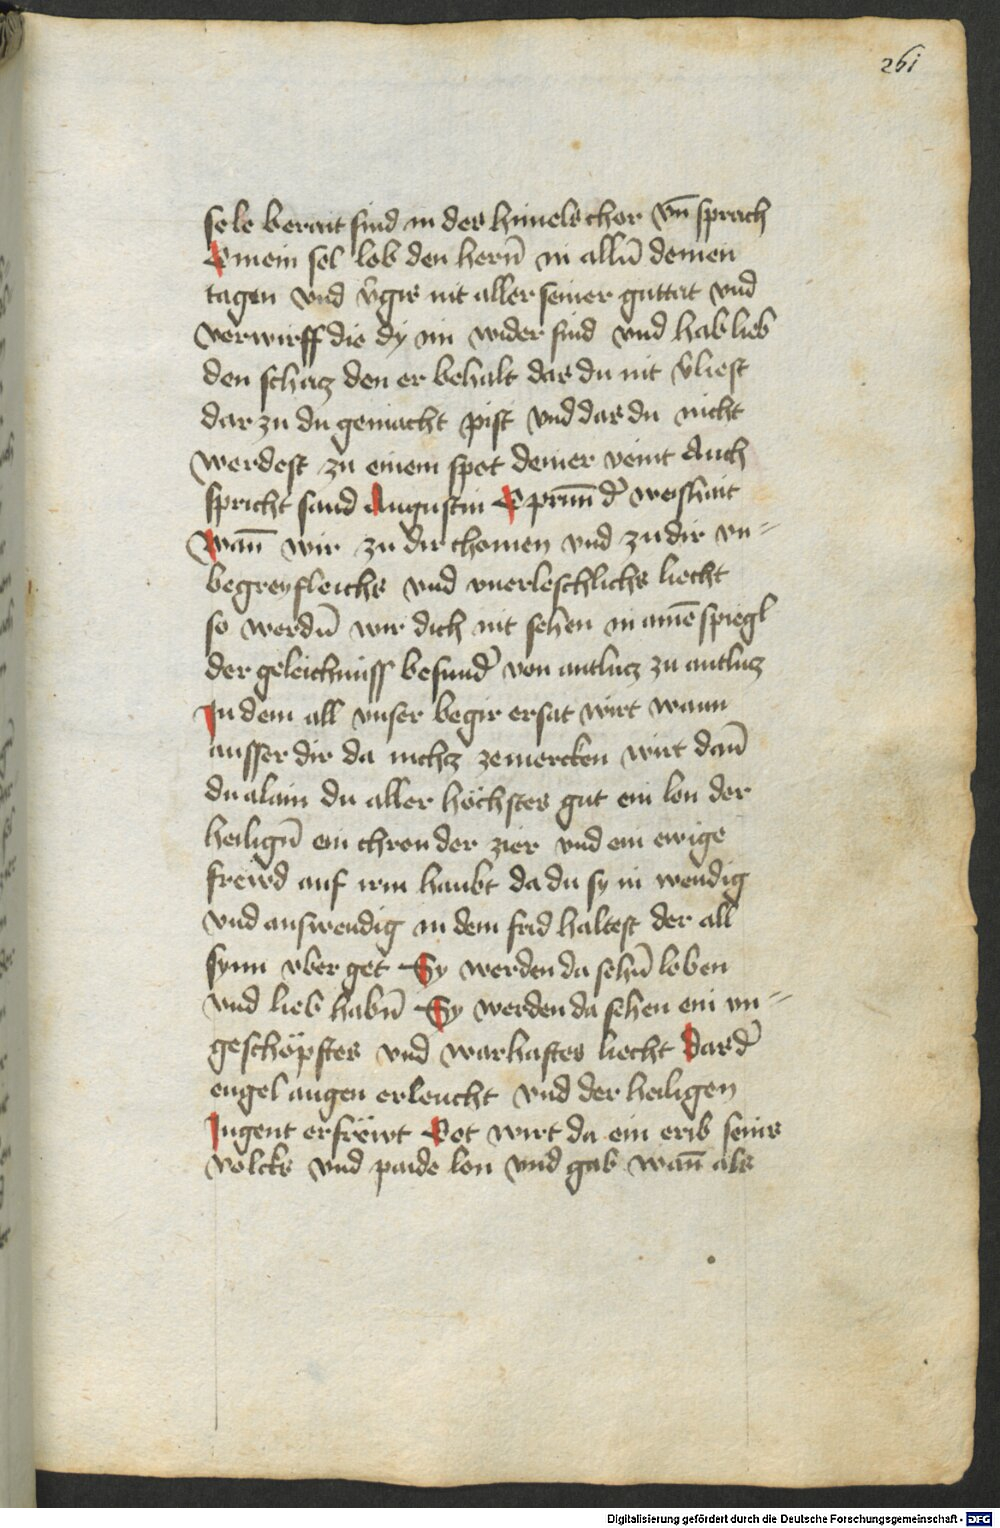 261
sele berait sind in des himels chor Vn̄ sprach
O mein sel lob den hern̄ in alln̄ deinen
tagen vnd v̄gis nit aller seiner guttat vnd
verwirff die dy im wider sind vnd hab lieb
den schacz den er behalt das du nit v̄liest
dar zu du gemacht pist vnd das du nicht
werdest zu einem spot deiner veint Auch
spricht sand Augustin O prun̄ d̄ weishait
Wan̄ wir zu dir chomen vnd zu dir vn=
begreyfleichs vnd vnerleschlichs liecht
so werdn̄ wir dich nit sehen in aine͂ spiegl
der geleichnuss besund̄ von antlucz zu antlucz
In dem all vnser begir ersat wirt wann
ausser dir da nichcz zemercken wirt dan̄
du alain du aller höchstes gut ein lon der
heilign̄ ein chron der zier vnd ein ewige
frewd auf irm haubt da du sy in wendig
vnd auswendig in dem frid haltest der all
synn vber get Sy werden da sehn̄ loben
vnd lieb habn̄ Sy werden da sehen ein vn=
geschöpftes vnd warhaftes liecht Das d̄
engel augen erleucht vnd der heiligen
Jugent erfrëwt Got wirt da ein erib seins
volcks vnd paide lon vnd gab wan̄ als
Digitalisierung gefördert durch die Deutsche Forschungsgemeinschaft - DFG